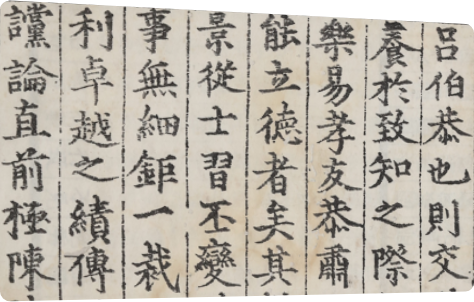 呂伯恭也則交
養於致知之際
樂易孝友恭肅
能立德者矣其
景從士習丕變
事無細鉅一裁
利卓越之績傳
讜論直前極陳